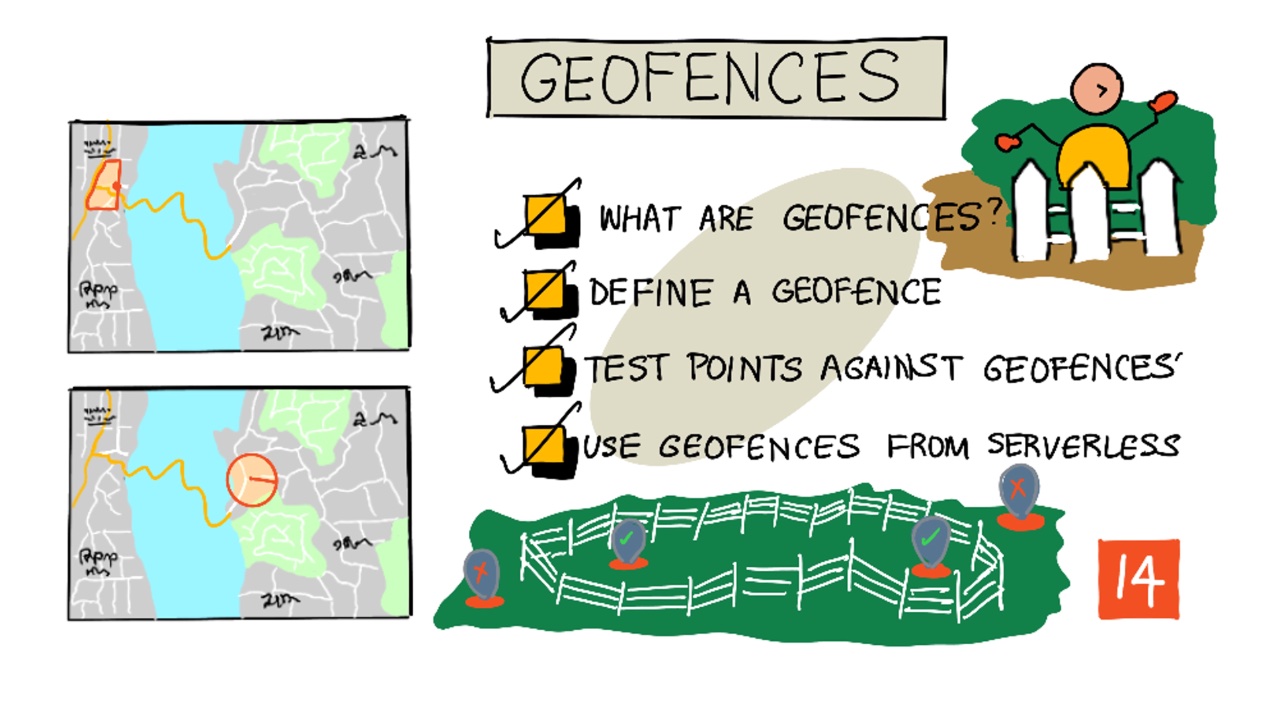 GEOFENCES
WHAT ARE GEOFENCES?
DEFINE A GEOFENCE
TEST POINTS AGAINST GEOFENCES'
USE GEOFENCES FROM SERVERLESS
14